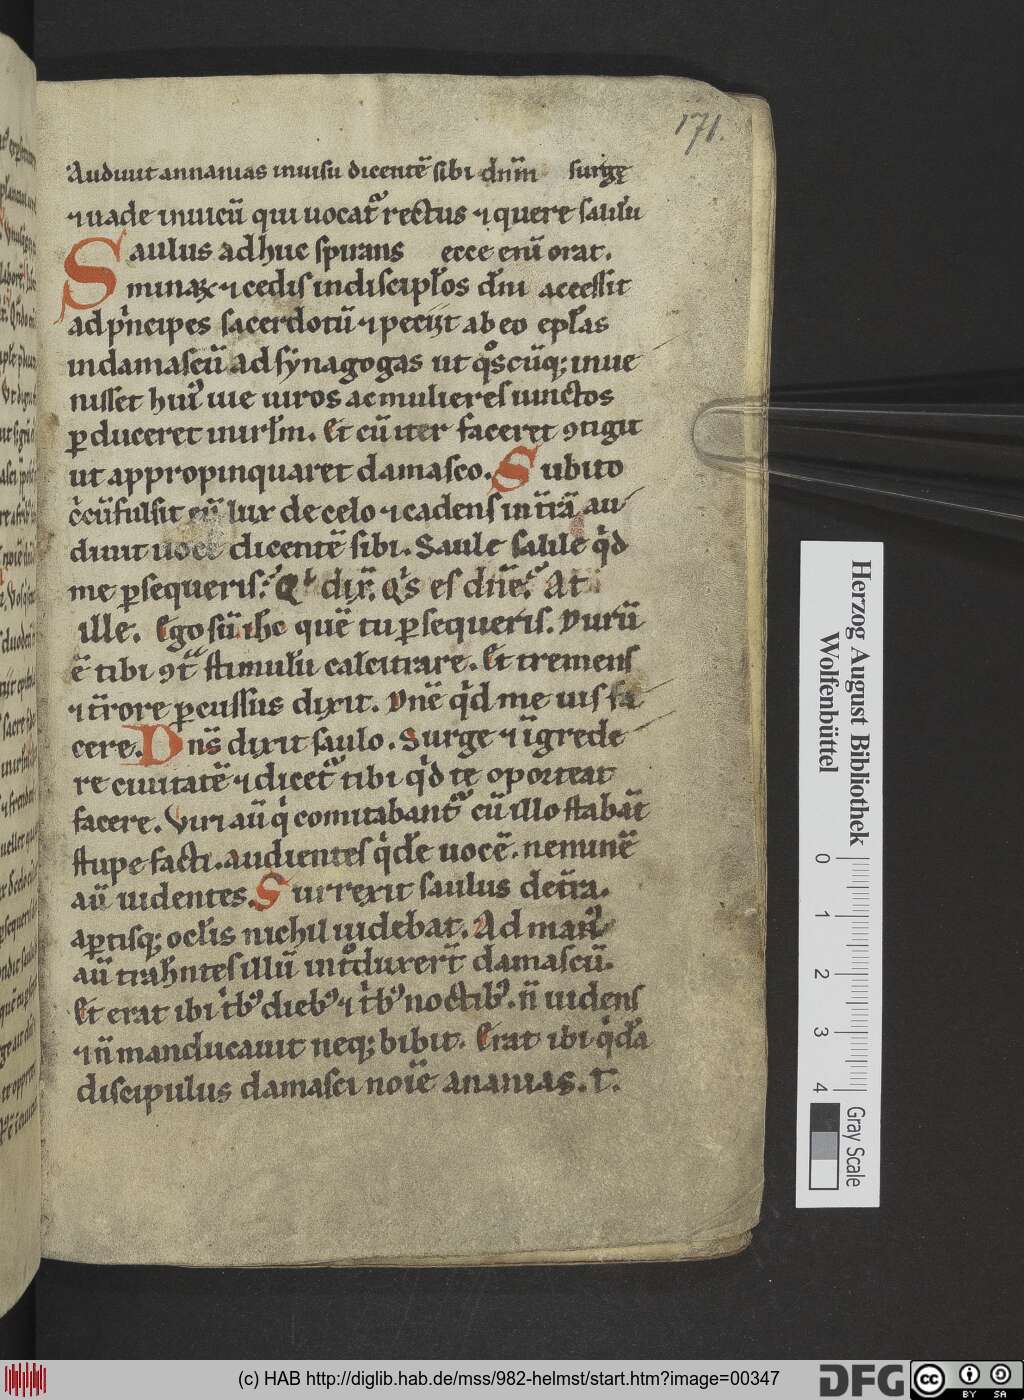 171.
Audiuit annanias inuisu dicentē sibi dn̄m surgę
⁊ uade inuicū qui uocat᷑ rectus ⁊ quere saulū
Saulus adhuc spirans ecce enī orat.
minax ⁊ cedis in discip̄los dn̄i accessit
ad pͥncipes sacerdotū ⁊ peciit ab eo ep̄las
in damascū ad synagogas ut qͦscūq; inue
nisset huiꝰ uie uiros ac mulieres uinctos
ꝑduceret in irl̄m. Et cū iter faceret ꝯtigit
ut appropinquaret damasco. Subito
cͥcūfulsit eū lux de celo ⁊ cadens in t̄rā au
diuit uocē dicentē sibi. Saule saule qͥd
me ꝑsequeris? Qͥ dix̄. Qͥs es dn̄e? At
ille. Ego sū ihc quē tu ꝑsequeris. Durū
ē tibi ꝯt᷑ stimulū calcitrare. Et tremens
⁊ t̄rore ꝑcussus dixit. Dn̄e qͥd me uis fa
cere. Dn̄s dixit saulo. Surge ⁊ īgrede
re ciuitatē ⁊ dicet᷑ tibi qͥd te oporteat
facere. Viri aū qͥ comitabant᷑ cū illo stabāt
stupefacti. audientes qͥdē uocē. neminē
aū uidentes. Surrexit saulus de t̄ra.
aꝑtisq; ocl̄is nichil uidebat. Ad manꝰ
aū trahntes illū intͦduxer̄t damascū.
Et erat ibi tͥbꝰ diebꝰ ⁊ tͥbꝰ noctibꝰ. n̄ uidens
⁊ n̄ manducauit neq; bibit. Erat ibi qͥdā
discipulus damasci noīe ananias. T.
Herzog August Bibliothek
Wolfenbüttel
0 1 2 3 4
Gray Scale
(c) HAB http://diglib.hab.de/mss/982-helmst/start.htm?image=00347
DFG
cc BY SA